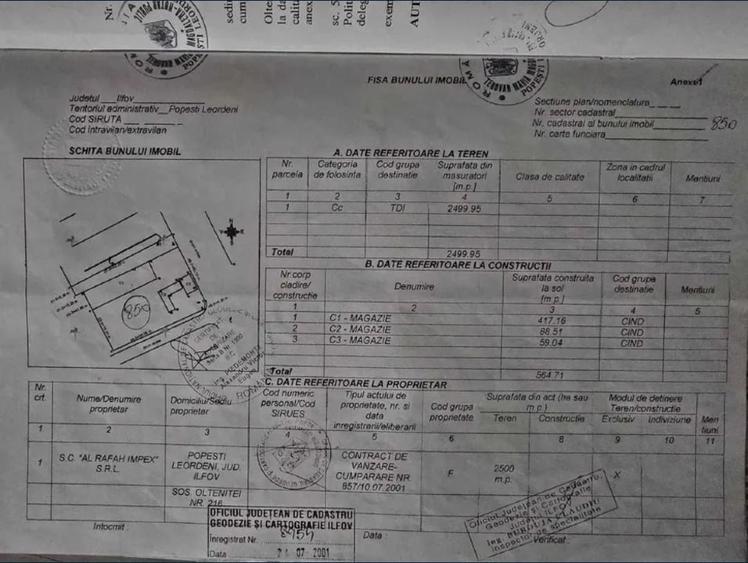 FISA BUNULUI IMOBIL
Anexa1
Judetul Ilfov
Teritoriul administrativ Popesti Leordeni
Cod SIRUTA
Cod intravilan/extravilan
Sectiune plan/nomenclatura
Nr. sector cadastral
Nr. cadastral al bunului imobil 850
Nr. carte funciara
SCHITA BUNULUI IMOBIL
850
A. DATE REFERITOARE LA TEREN
Nr. parcela Categoria de folosinta Cod grupa destinatie Suprafata din masuratori [m.p.] Clasa de calitate Zona in cadrul localitatii Mentiuni
1 2 3 4 5 6 7
1 Cc TDI 2499.95
Total 2499.95
B. DATE REFERITOARE LA CONSTRUCTII
Nr.corp cladire/constructie Denumire Suprafata construita la sol [m.p.] Cod grupa destinatie Mentiuni
1 2 3 4 5
1 C1 - MAGAZIE 417.16 CIND
2 C2 - MAGAZIE 88.51 CIND
3 C3 - MAGAZIE 59.04 CIND
Total 564.71
C. DATE REFERITOARE LA PROPRIETAR
Nr. crt. Nume/Denumire proprietar Domiciliu/Sediu proprietar Cod numeric personal/Cod SIRUES Tipul actului de proprietate, nr. si data inregistrarii/eliberarii Cod grupa proprietate Suprafata din act (ha sau m.p.) Modul de detinere Teren/constructie Mentiuni
Teren Constructie Exclusiv Indiviziune
1 2 3 4 5 6 8 9 10 11
1 S.C. "AL RAFAH IMPEX" S.R.L. POPESTI LEORDENI, JUD. ILFOV CONTRACT DE VANZARE-CUMPARARE NR 857/10.07.2001 2500 m.p. X
SOS. OLTENITEI NR. 216
Intocmit
OFICIUL JUDEȚEAN DE CADASTRU
GEODEZIE ȘI CARTOGRAFIE ILFOV
Inregistrat Nr.
Data 07 2001
Data
Oficiul Judetean de Cadastru,
Geodezie si Cartografie
Judetul Ilfov
Inspector de specialitate
Verificat